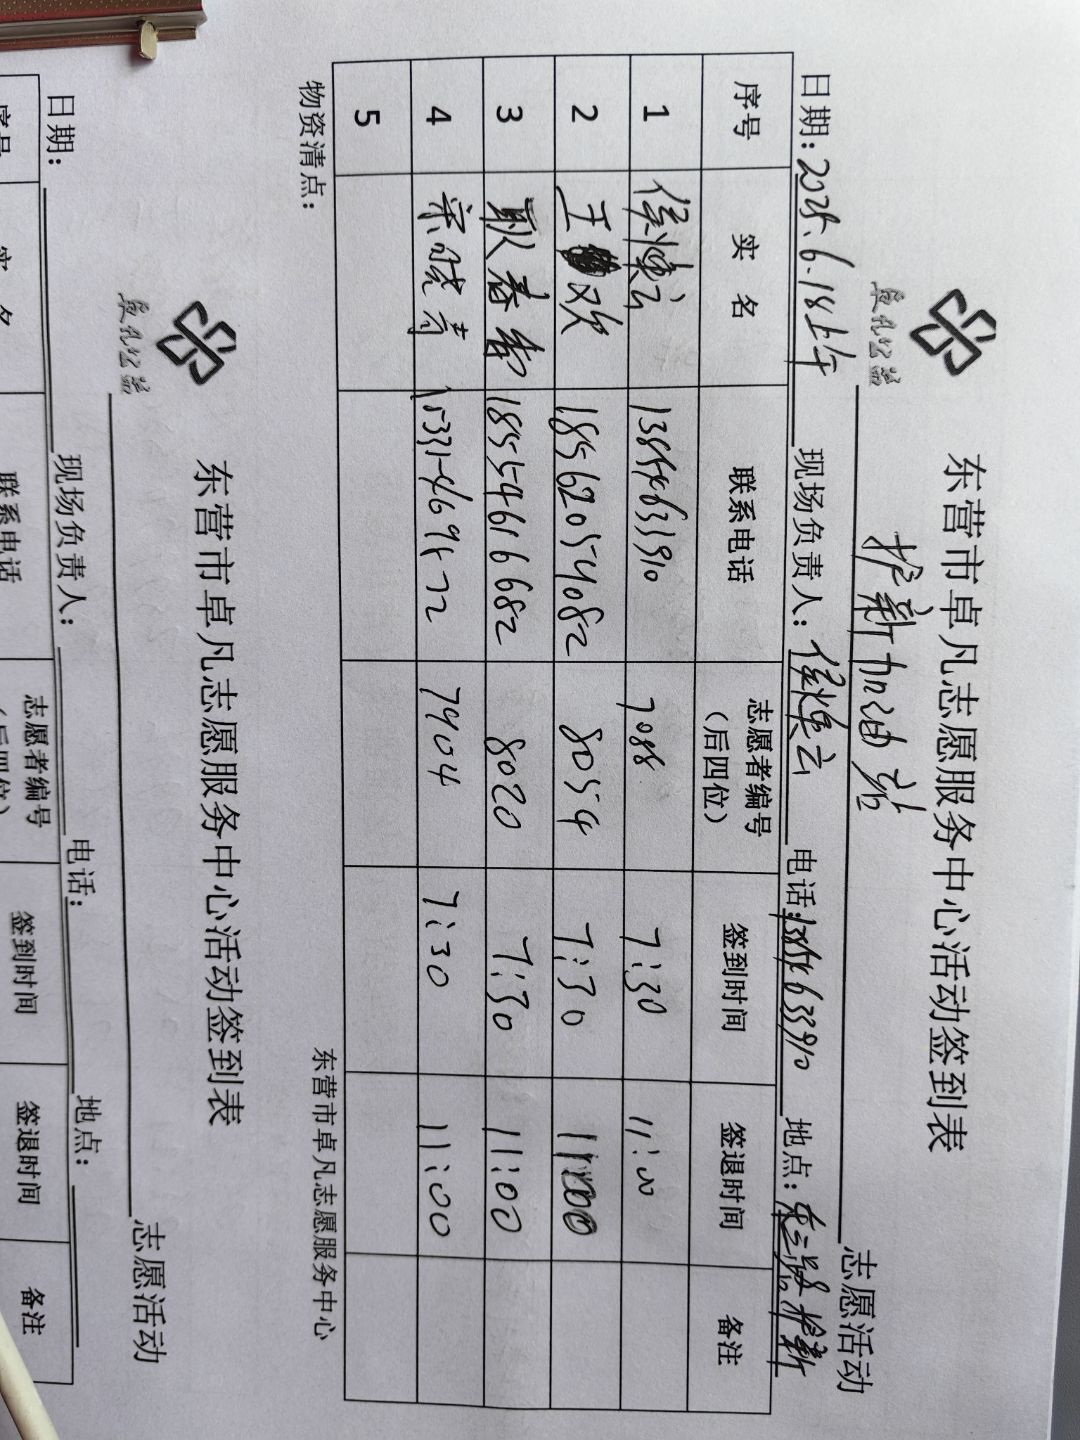 卓凡公益
东营市卓凡志愿服务中心活动签到表
护新加油站 志愿活动
日期：2025.6.18上午 现场负责人：侯焕云 电话：13854633910 地点：
序号 实 名 联系电话 志愿者编号（后四位） 签到时间 签退时间 备注
1 侯焕云 13854633910 7088 7:30 11:00
2 王 欢 18562054082 8054 7:30 11:00
3 耿春香 18554616682 8020 7:30 11:00
4 宋晓青 15331469572 7904 7:30 11:00
5
物资清点： 东营市卓凡志愿服务中心
卓凡公益
东营市卓凡志愿服务中心活动签到表
志愿活动
日期： 现场负责人： 电话： 地点：
序号 实 名 联系电话 志愿者编号（后四位） 签到时间 签退时间 备注